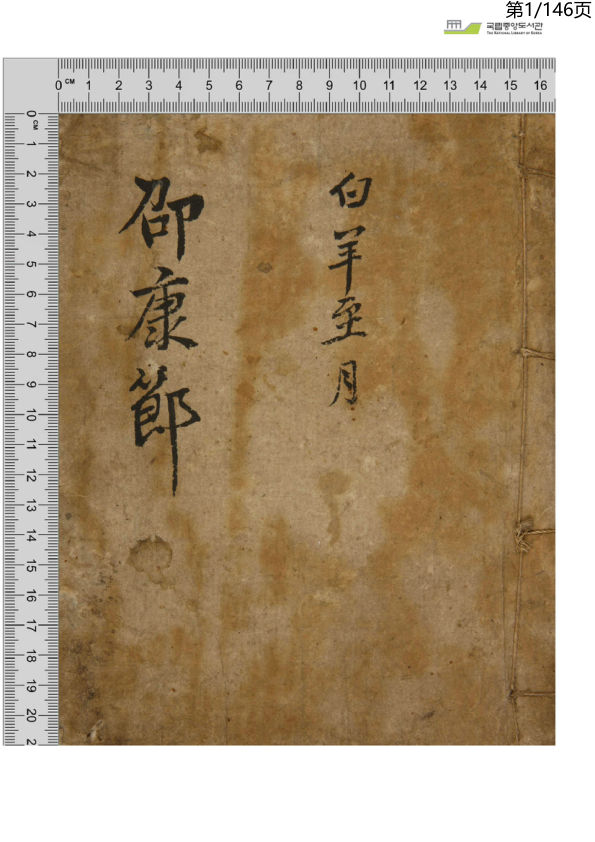 第1/146页
국립중앙도서관
THE NATIONAL LIBRARY OF KOREA
0 CM 1 2 3 4 5 6 7 8 9 10 11 12 13 14 15 16
0 CM 1 2 3 4 5 6 7 8 9 10 11 12 13 14 15 16 17 18 19 20 2
白羊至月
邵康節